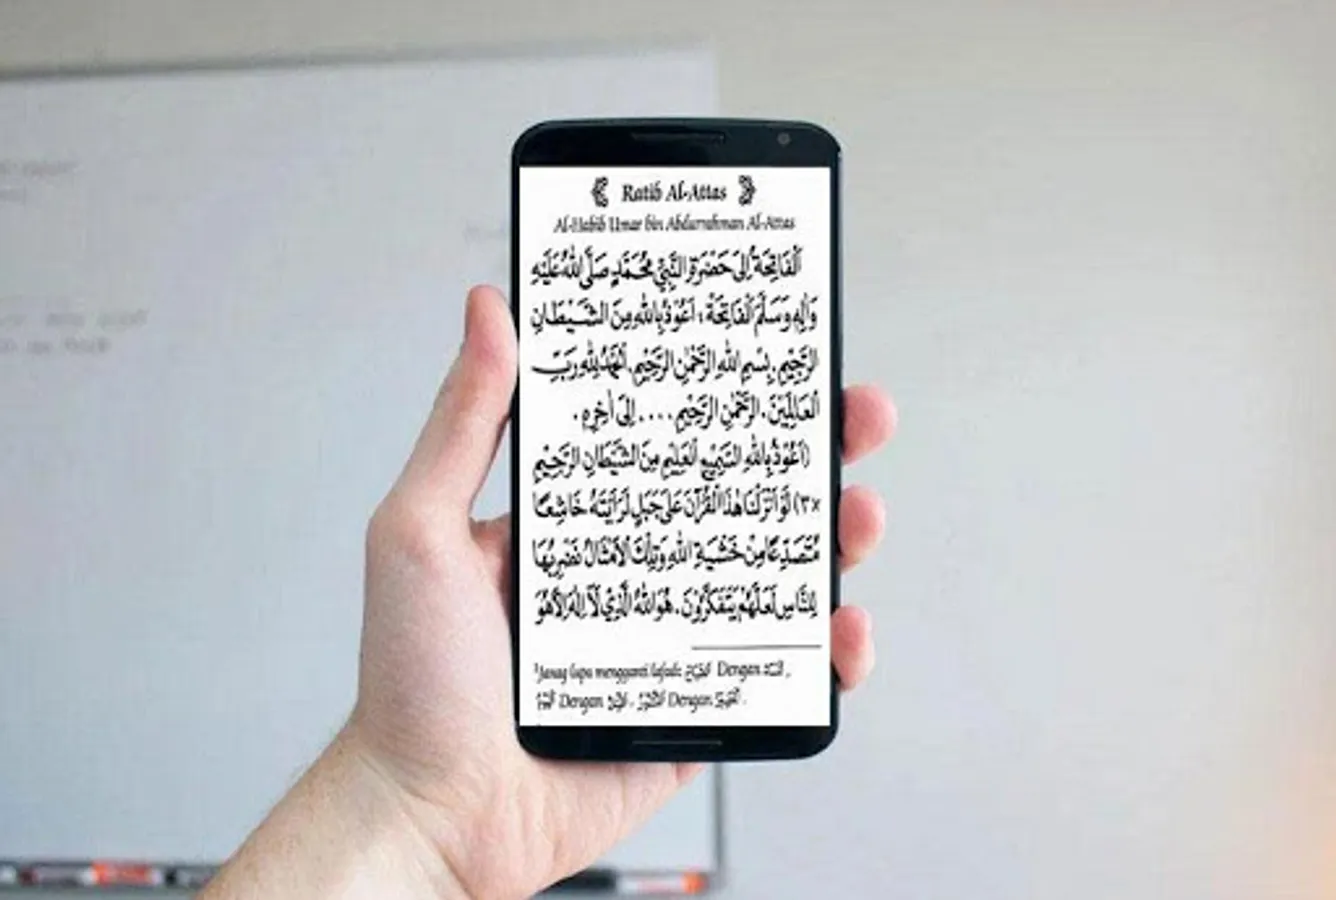 Ratib Al-Attas
Al-Habib Umar bin Abdurrahman Al-Attas
اَلْفَاتِحَةُ إِلَى حَضْرَةِ النَّبِيِّ مُحَمَّدٍ صَلَّى اللهُ عَلَيْهِ
وَاٰلِهِ وَسَلَّمَ اَلْفَاتِحَةْ : اَعُوْذُ بِاللهِ مِنَ الشَّيْطَانِ
الرَّجِيْمِ. بِسْمِ اللهِ الرَّحْمٰنِ الرَّحِيْمِ. اَلْحَمْدُ لِلّٰهِ رَبِّ
الْعَالَمِيْنَ. الرَّحْمٰنِ الرَّحِيْمِ .... اِلَى اٰخِرِهِ.
(اَعُوْذُ بِاللهِ السَّمِيْعِ الْعَلِيْمِ مِنَ الشَّيْطَانِ الرَّجِيْمِ
×٣) لَوْ اَنْزَلْنَا هٰذَا الْقُرْآنَ عَلَى جَبَلٍ لَرَاَيْتَهُ خَاشِعًا
مُتَصَدِّعًا مِنْ خَشْيَةِ اللهِ وَتِلْكَ الْاَمْثَالُ نَضْرِبُهَا
لِلنَّاسِ لَعَلَّهُمْ يَتَفَكَّرُوْنَ. هُوَ اللهُ الَّذِيْ لَا اِلٰهَ اِلَّا هُوَ
lupa mengganti lafadz Dengan
Dengan Dengan